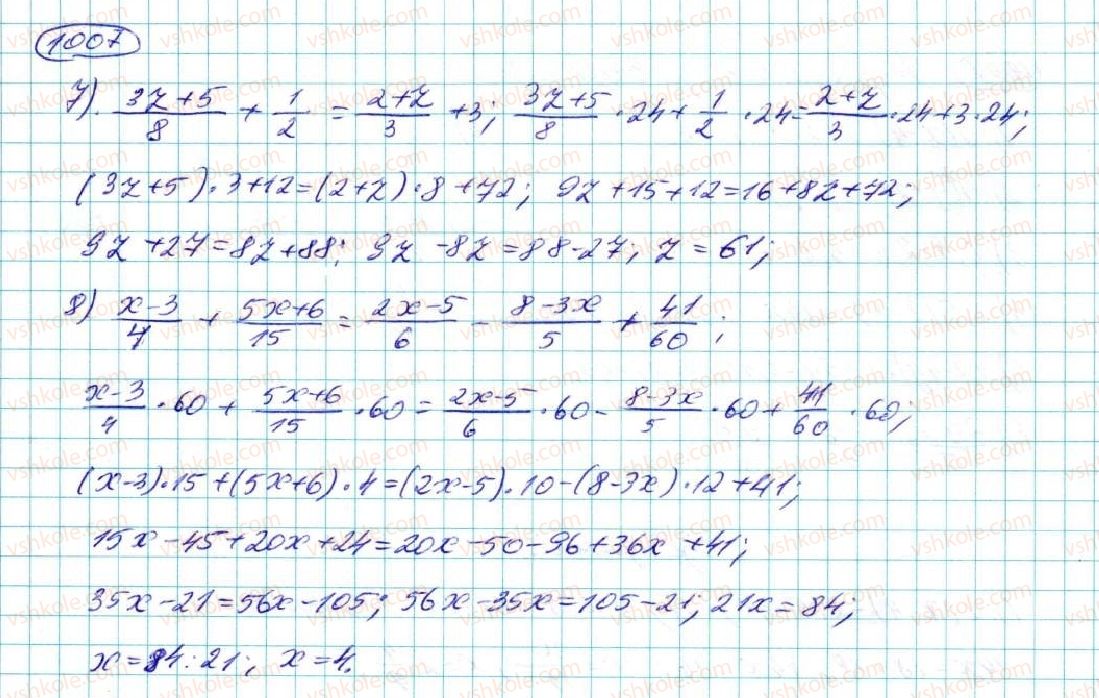 1007
7). (3z+5)/8 + 1/2 = (2+z)/3 + 3; (3z+5)/8 · 24 + 1/2 · 24 = (2+z)/3 · 24 + 3 · 24;
(3z+5)·3+12=(2+z)·8+72; 9z+15+12=16+8z+72;
9z+27=8z+88; 9z-8z=88-27; z=61;
8) (x-3)/4 + (5x+6)/15 = (2x-5)/6 - (8-3x)/5 + 41/60;
(x-3)/4 · 60 + (5x+6)/15 · 60 = (2x-5)/6 · 60 - (8-3x)/5 · 60 + 41/60 · 60;
(x-3)·15+(5x+6)·4=(2x-5)·10-(8-3x)·12+41;
15x-45+20x+24=20x-50-96+36x+41;
35x-21=56x-105; 56x-35x=105-21; 21x=84;
x=84:21; x=4.